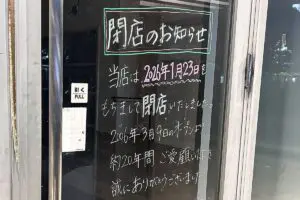 閉店のお知らせ
当店は、2026年1月23日を
もちまして閉店いたしました。
2006年3月9日のオープンより
約20年間ご愛顧いただき
誠にありがとうございました
引く
PULL